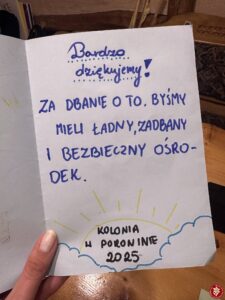 Bardzo
dziękujemy!
ZA DBANIE O TO. BYŚMY
MIELI ŁADNY, ZADBANY
I BEZBIECZNY OŚRO-
DEK.
KOLONIA
W PORONINIE
2025